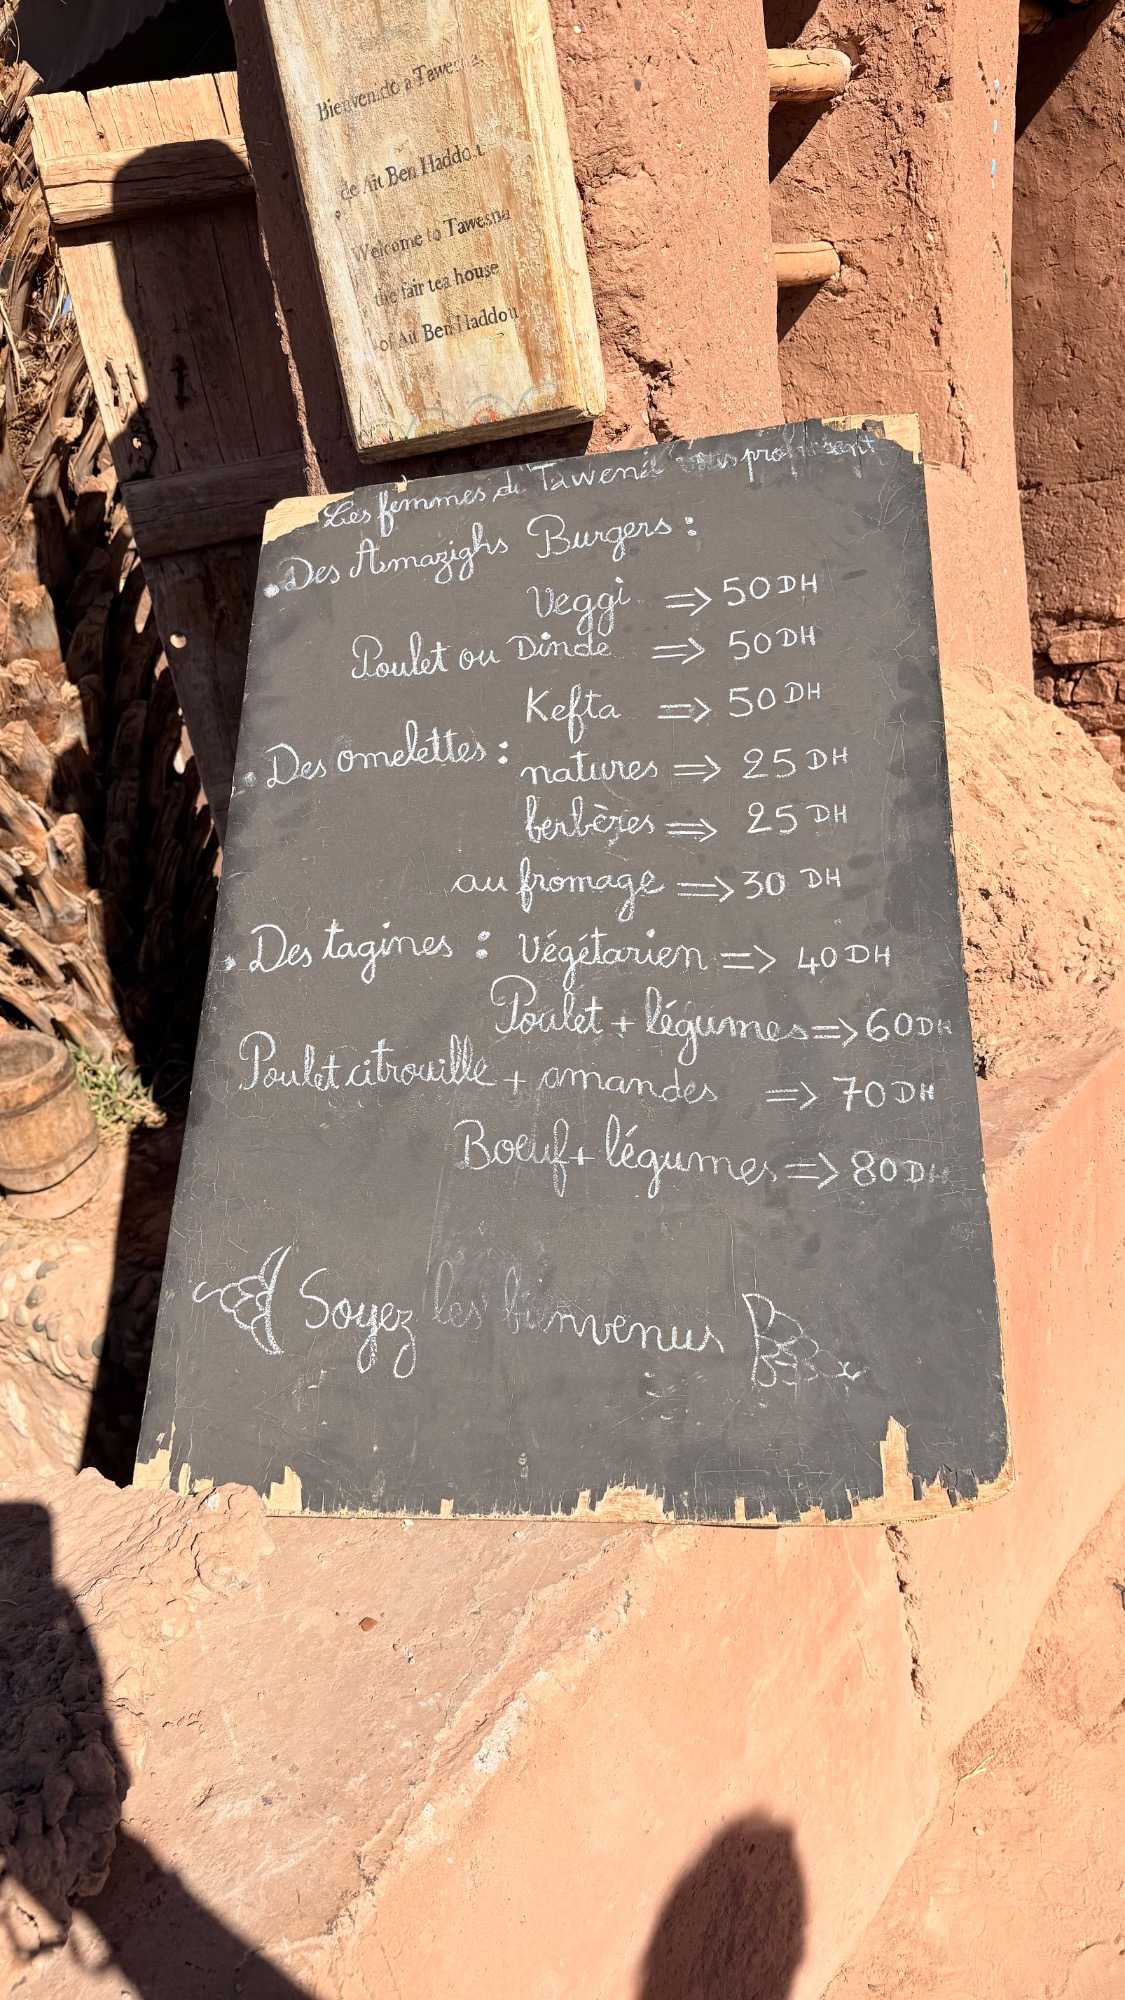 Bienvenido a Tawesna
de Ait Ben Haddou
Welcome to Tawesna
the fair tea house
of Ait Ben Haddou
Les femmes d
. Des Amazighs Burgers :
Veggi => 50 DH
Poulet ou Dinde => 50 DH
Kefta => 50 DH
. Des omelettes : natures => 25 DH
berbères => 25 DH
au fromage => 30 DH
. Des tagines : Végétarien => 40 DH
Poulet + légumes => 60 DH
Poulet citrouille + amandes => 70 DH
Boeuf + légumes => 80 DH
Soyez les bienvenus